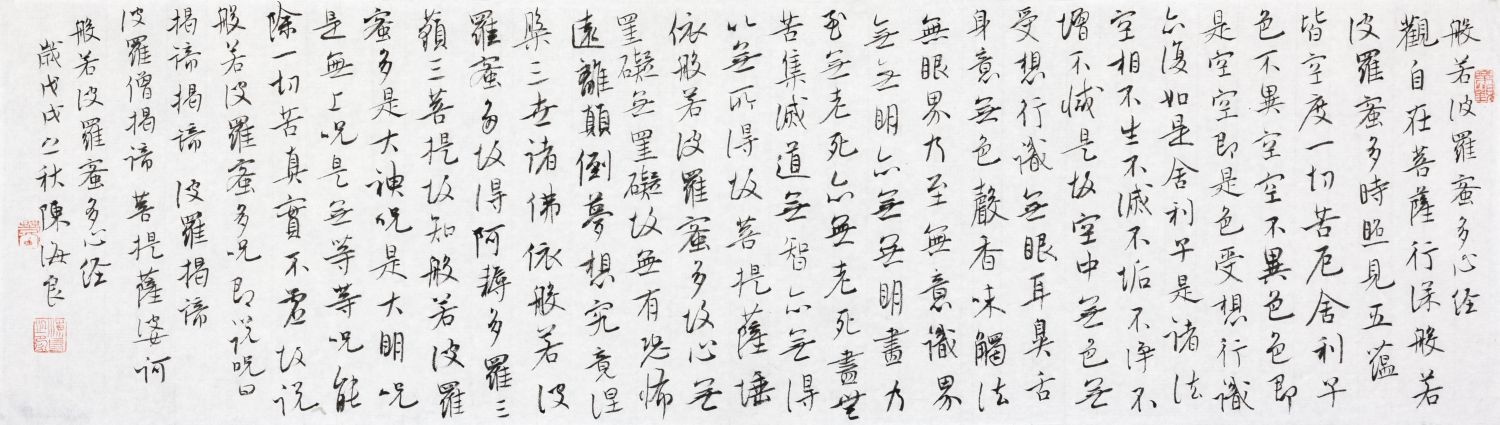 般若波羅蜜多心经
觀自在菩薩行深般若
波羅蜜多時照見五蕴
皆空度一切苦厄舍利子
色不異空空不異色色即
是空空即是色受想行識
亦復如是舍利子是诸法
空相不生不滅不垢不淨不
增不减是故空中無色无
受想行識無眼耳鼻舌
身意無色聲香味觸法
無眼界乃至無意識界
无无明亦無无明盡乃
至无老死亦無老死盡無
苦集滅道無智亦无得
以无所得故菩提薩埵
依般若波羅蜜多故心无
罣礙无罣礙故無有恐怖
遠離顛倒夢想究竟涅
槃三世诸佛依般若波
羅蜜多故得阿耨多羅三
藐三菩提故知般若波羅
蜜多是大神咒是大明咒
是無上咒是无等等咒能
除一切苦真實不虚故说
般若波羅蜜多咒即说咒曰
揭諦揭諦 波羅揭諦
波羅僧揭諦 菩提薩婆訶
般若波羅蜜多心经
歲戊戌之秋陳海良